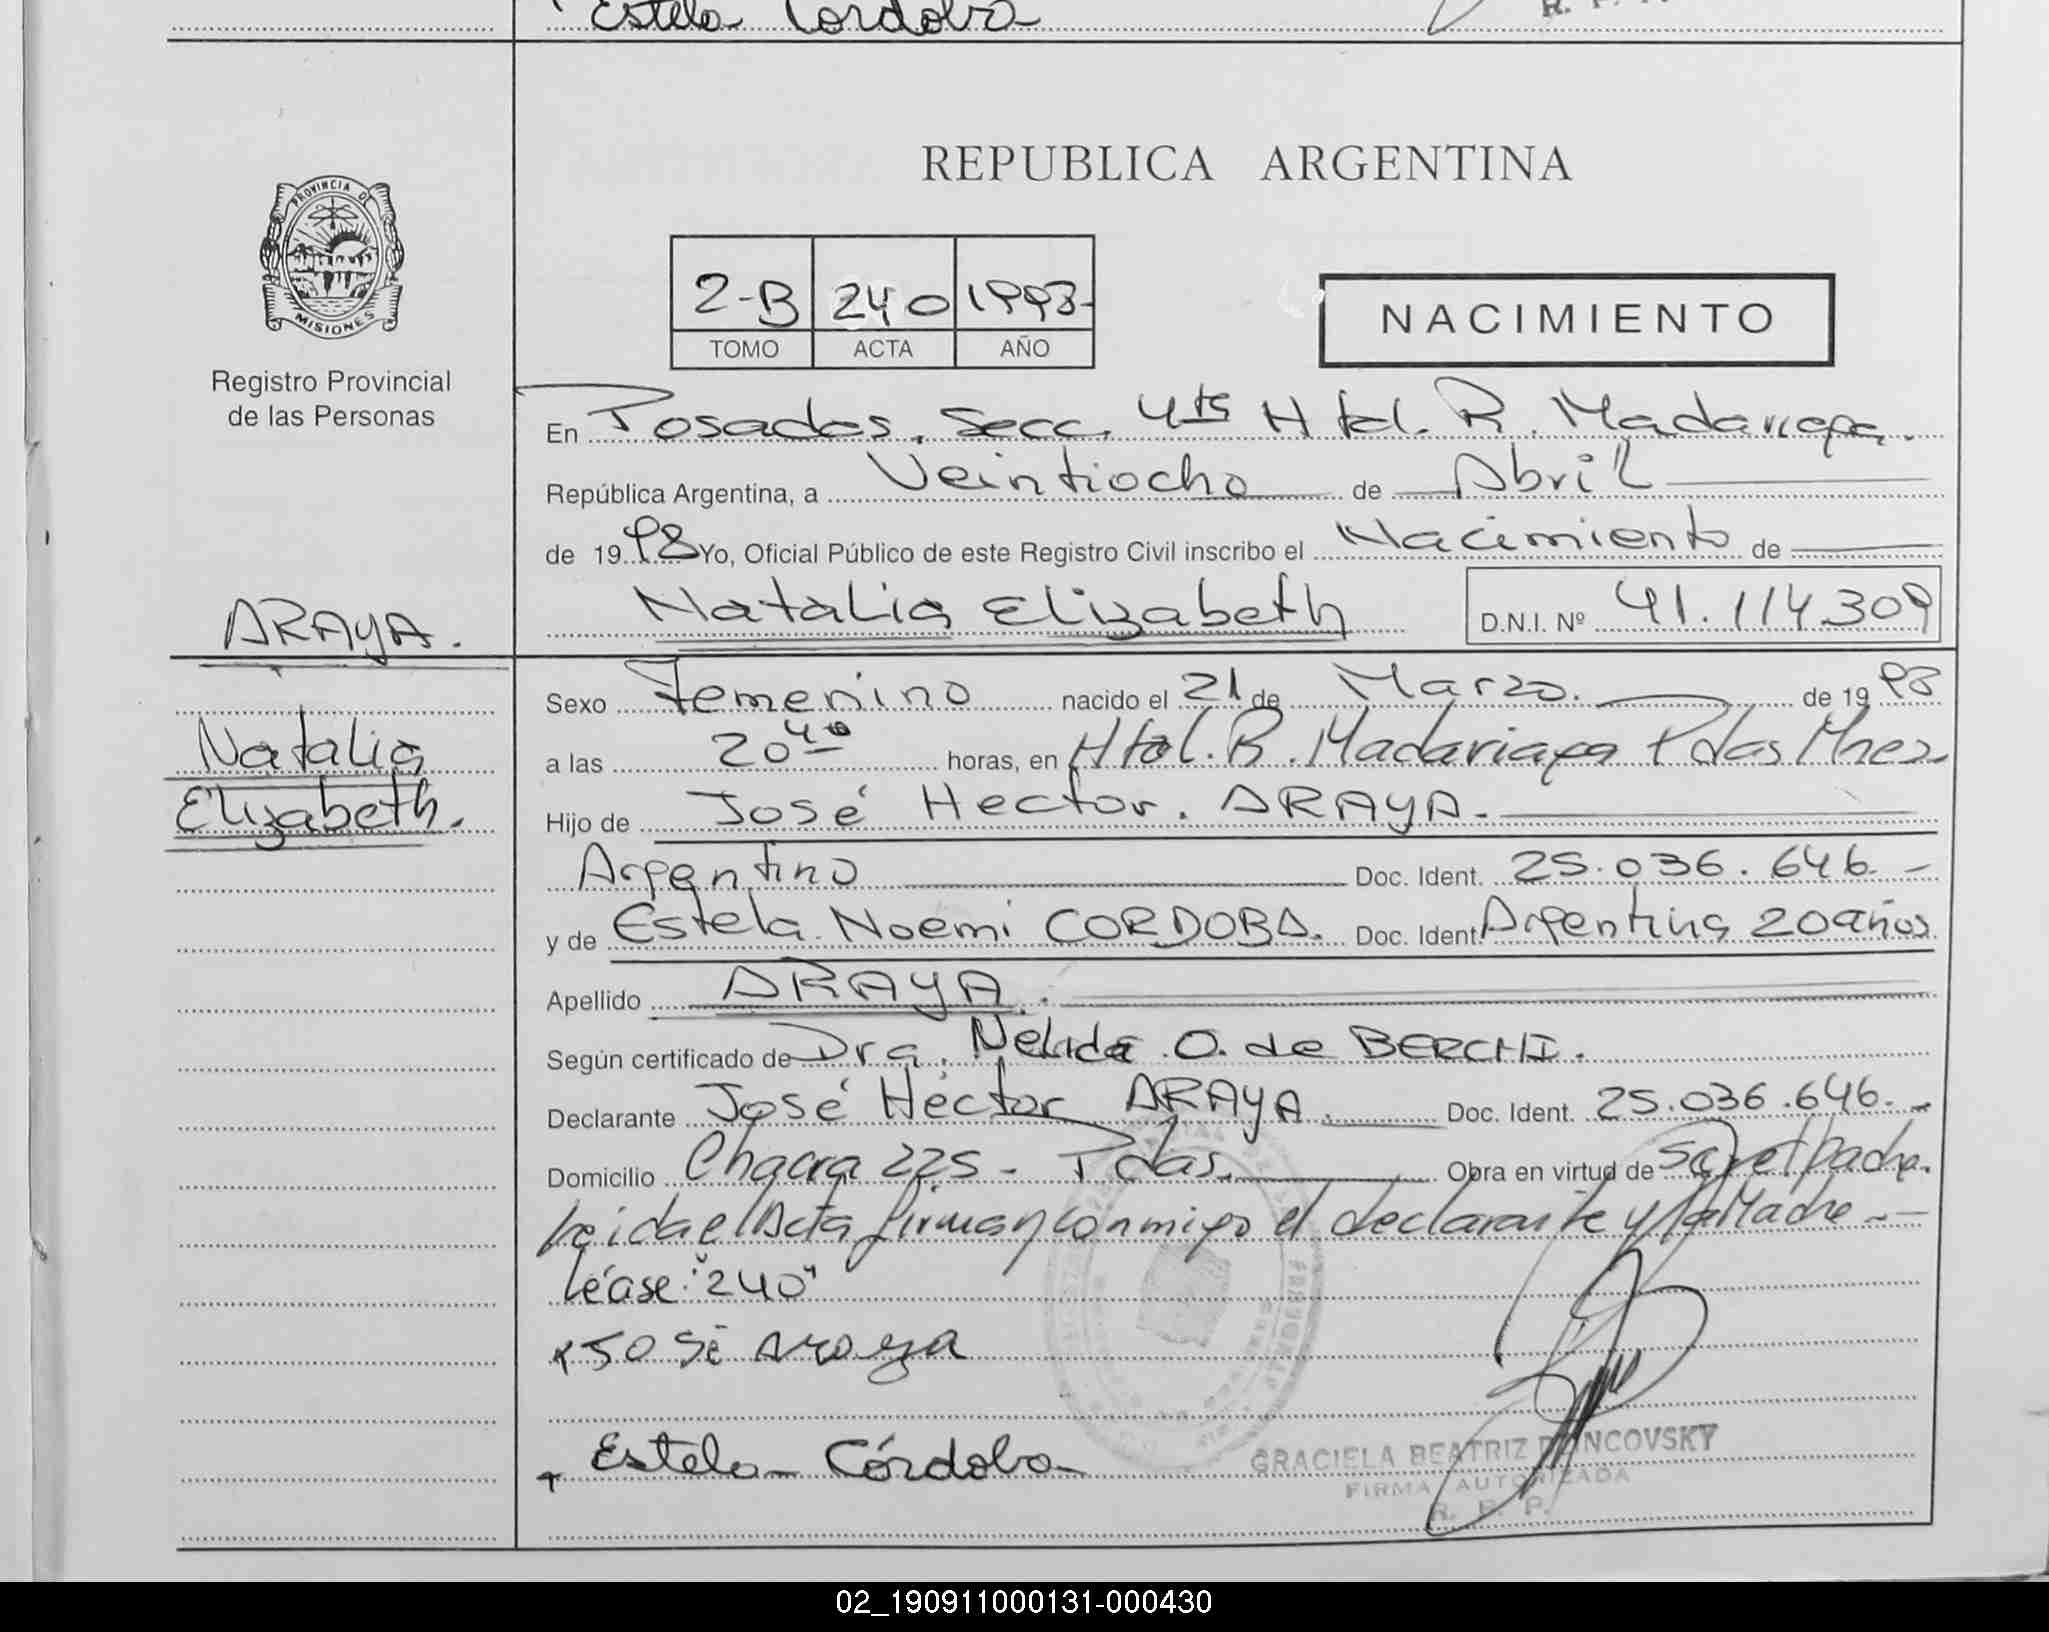 Estela Cordoba
REPUBLICA ARGENTINA
PROVINCIA DE
MISIONES
Registro Provincial
de las Personas
2-B 240 1998-
TOMO ACTA AÑO
NACIMIENTO
En Posadas, Secc. 4ta Htal. R. Madariaga.
República Argentina, a Veintiocho de Abril
de 1998 Yo, Oficial Público de este Registro Civil inscribo el Nacimiento de
Natalia Elizabeth D.N.I. Nº 41.114.309
ARAYA.
Natalia
Elizabeth.
Sexo Femenino nacido el 21 de Marzo. de 1998
a las 20 40 horas, en Htal. R. Madariaga Pdas Mnes.
Hijo de José Hector. ARAYA.
Argentino Doc. Ident. 25.036.646.-
y de Estela Noemi CORDOBA. Doc. Ident. Argentina 20 años
Apellido ARAYA.
Según certificado de Dra. Nelida O. de BERCHI.
Declarante José Héctor ARAYA. Doc. Ident. 25.036.646.-
Domicilio Chacra 225 - Pdas. Obra en virtud de ser el padre.
Leida el Acta firman conmigo el declarante y la Madre.-
Léase: "240"
x José Araya
x Estela Córdoba
GRACIELA BEATRIZ
FIRMA AUTORIZADA
R. P. P.
02_190911000131-000430